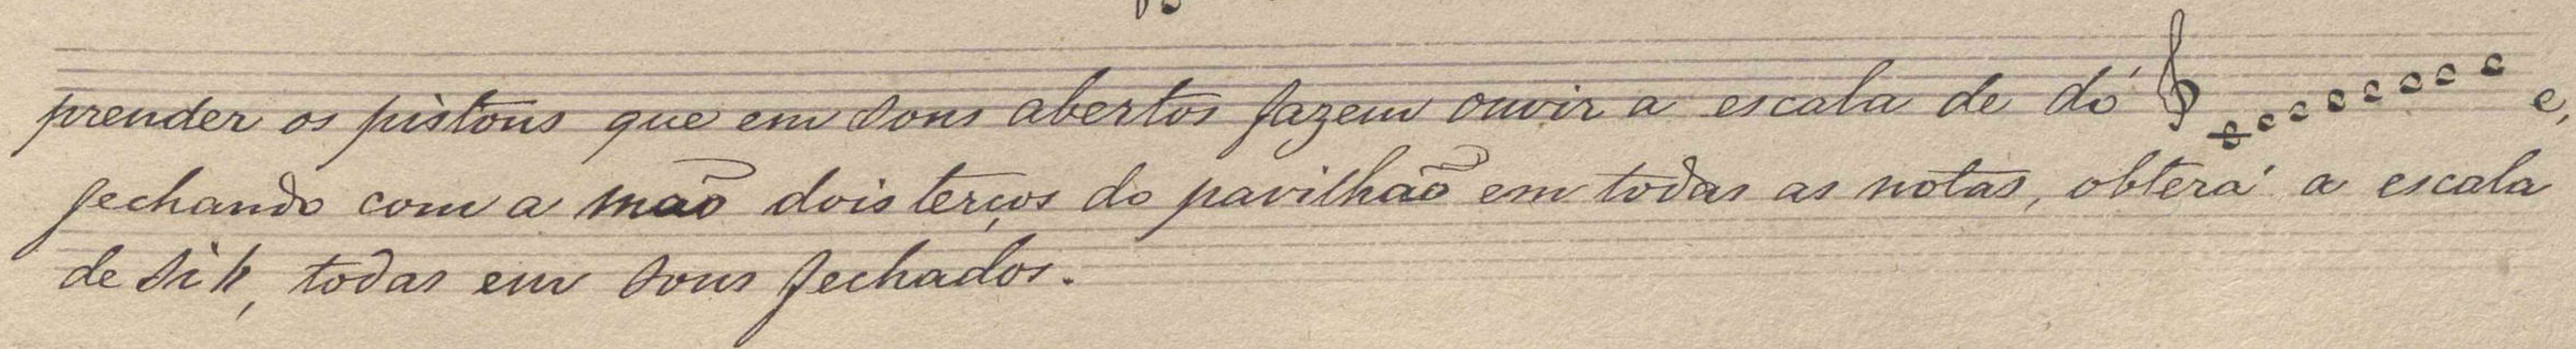 prender os pistons que em sons abertos fazem ouvir a escala de dó e,
fechando com a mão dois terços do pavilhão em todas as notas, obterá a escala
de si♮, todas em sons fechados.